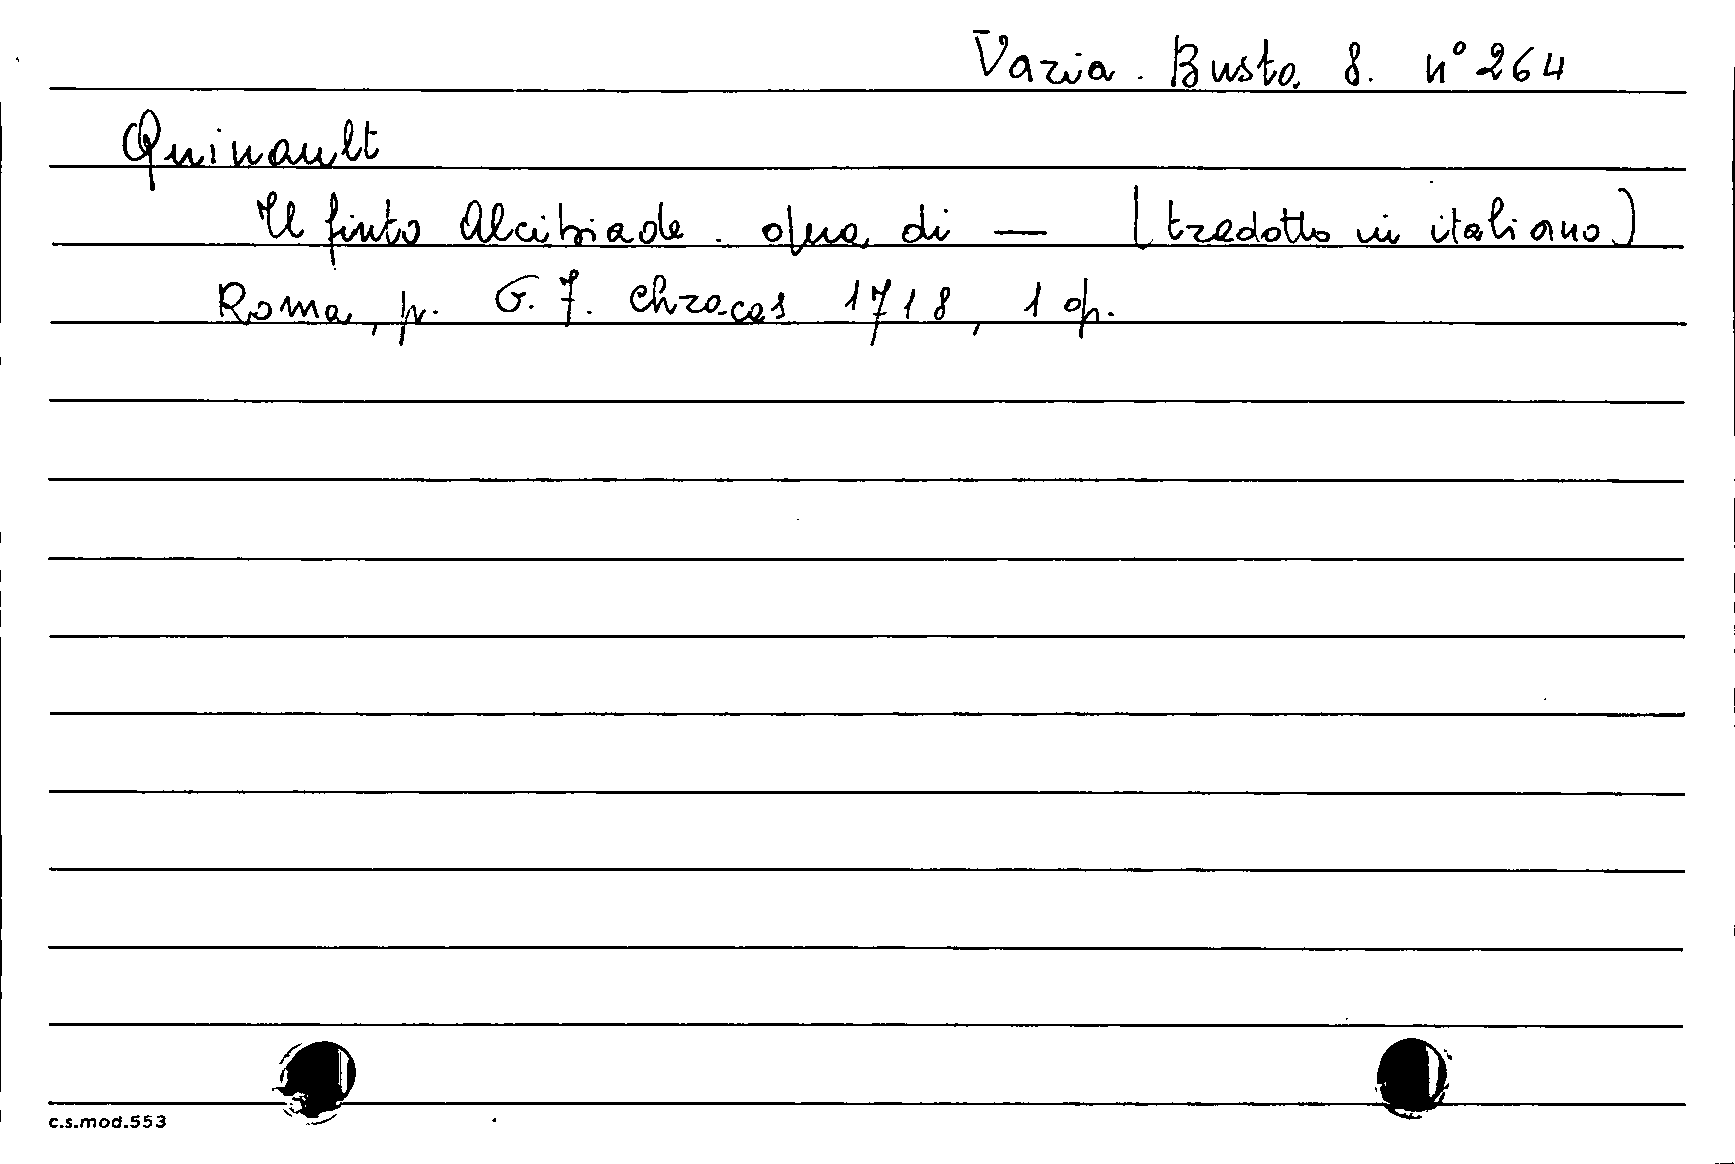 Varia. Busta 8. n° 264
Quinault
Il finto Alcibiade. opera di — (tradotto in italiano)
Roma, p. G. F. Chracas 1718, 1 op.
c.s.mod.553